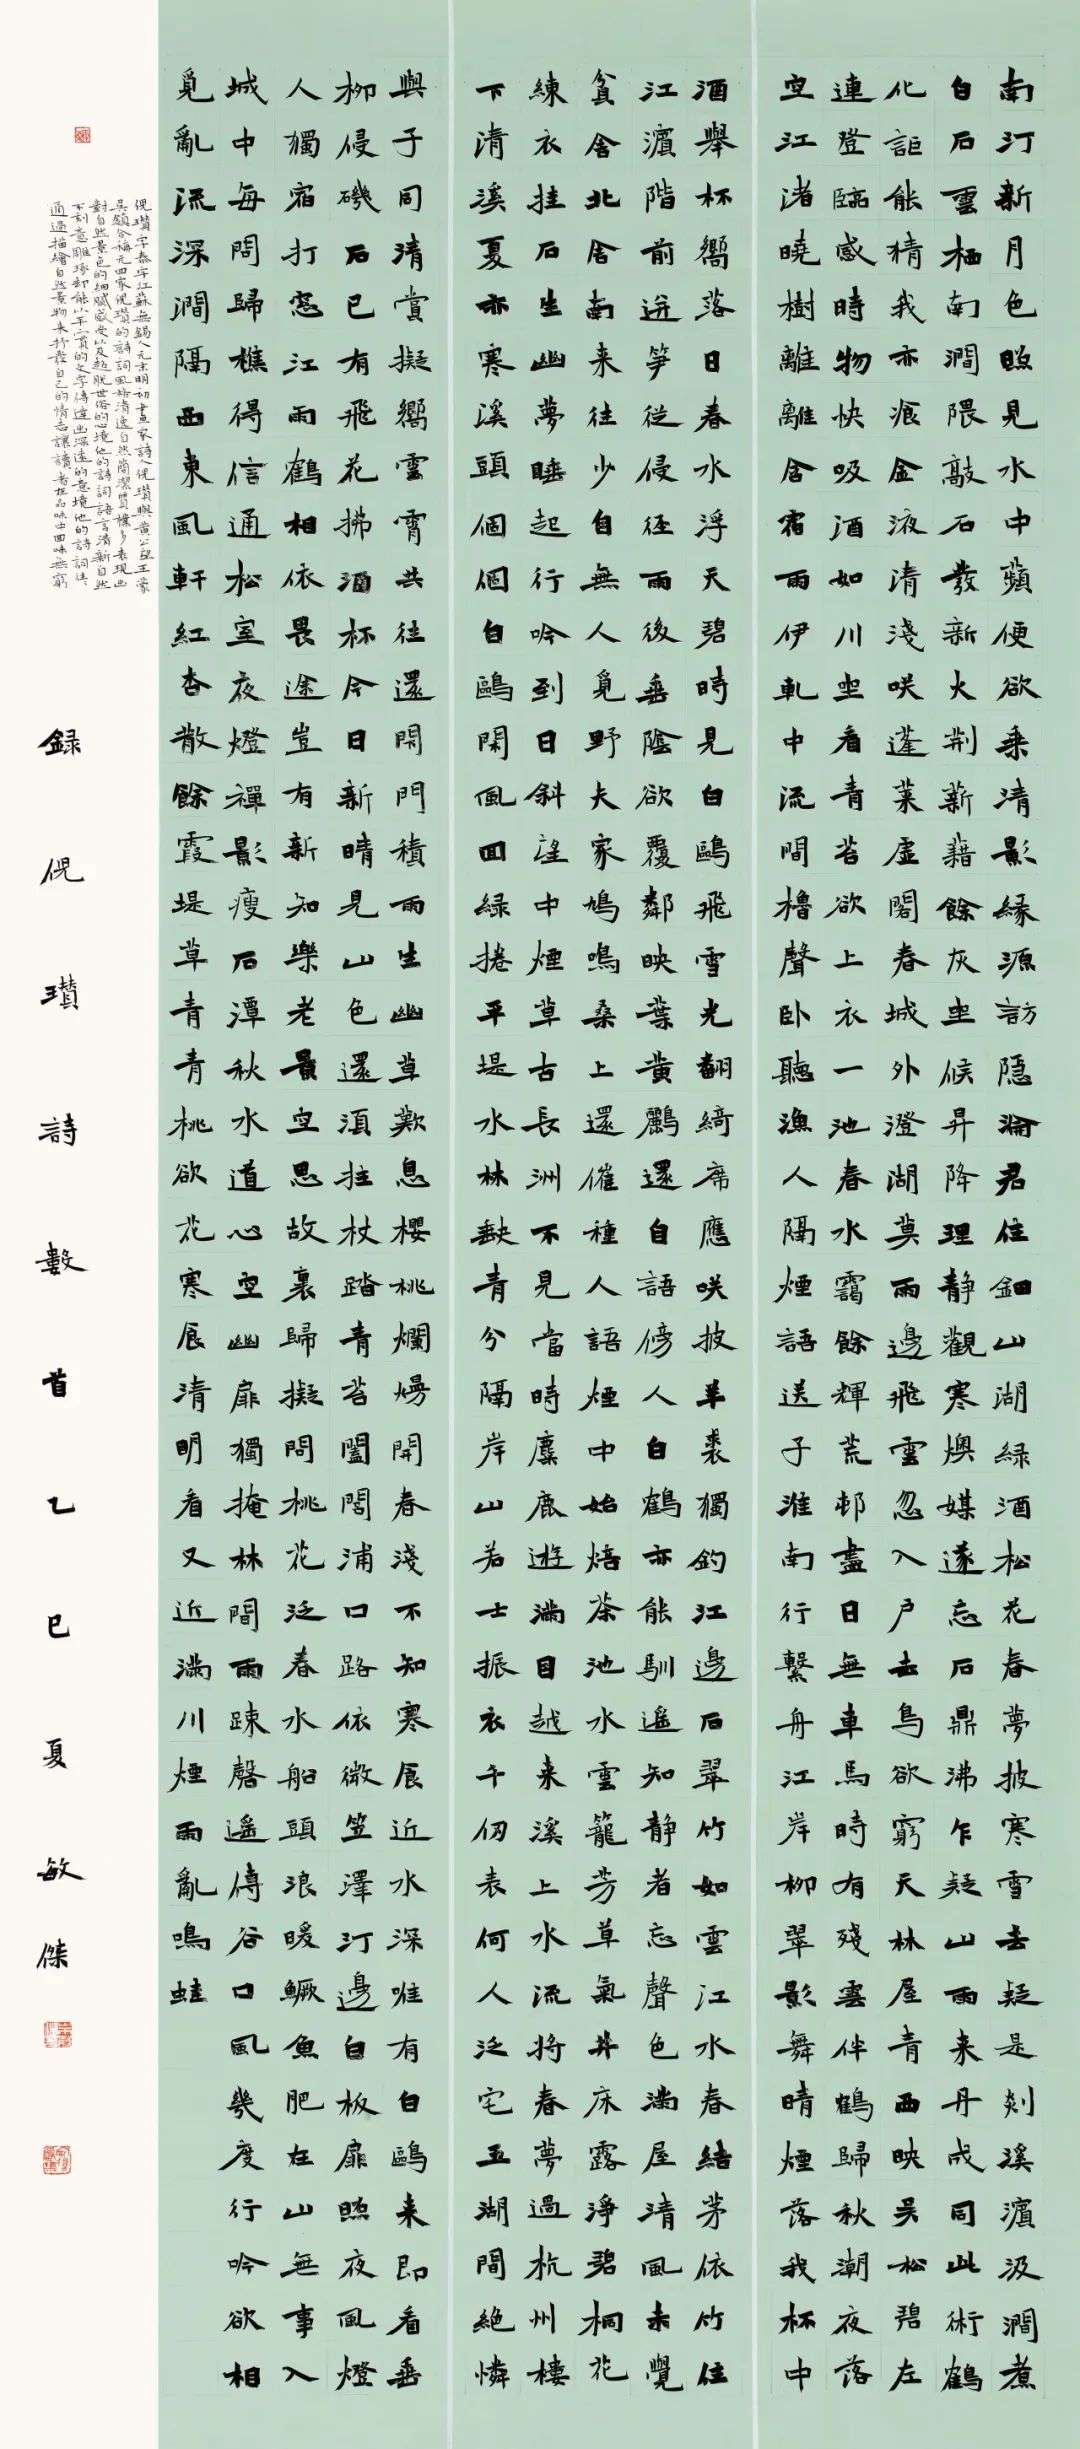 南汀新月色照見水中蘋便欲乘清影緣源訪隱淪君住鈿山湖綠酒松花春夢披寒雪去疑是剡溪濱汲澗煮
白石雲栖南澗隈敲石發新火荆薪藉餘灰坐候升降理靜觀寒燠媒遂忘石鼎沸乍疑山雨来丹成同此術鶴
化詎能猜我亦飡金液清淺咲蓬萊虛閣春城外澄湖莫雨邊飛雲忽入户去鳥欲窮天林屋青西映吴松碧左
連登臨感時物快吸酒如川坐看青苔欲上衣一池春水靄餘輝荒邨盡日無車馬時有殘雲伴鶴歸秋潮夜落
空江渚曉樹離離含宿雨伊軋中流間櫓聲卧聽漁人隔煙語送子淮南行繫舟江岸柳翠影舞晴煙落我杯中
酒舉杯嚮落日春水浮天碧時見白鷗飛雪光翻綺席應咲披羊裘獨釣江邊石翠竹如雲江水春結茅依竹住
江濱階前迸笋從侵徑雨後垂陰欲覆鄰映葉黄鸝還自語傍人白鶴亦能馴遥知静者忘聲色滿屋清風未覺
貧舍北舍南来往少自無人覓野夫家鳩鳴桑上還催種人語煙中始焙茶池水雲籠芳草氣井床露淨碧桐花
練衣挂石生幽夢睡起行吟到日斜望中煙草古長洲不見當時麋鹿遊滿目越来溪上水流将春夢過杭州棲
下清溪夏亦寒溪頭個個白鷗閑風回綠捲平堤水林缺青分隔岸山若士振衣千仞表何人泛宅五湖間絶憐
與子同清賞擬嚮雲霄共往還閉門積雨生幽草歎息櫻桃爛熳開春淺不知寒食近水深唯有白鷗来即看垂
柳侵磯石已有飛花拂酒杯今日新晴見山色還須拄杖踏青苔闔閭浦口路依微笠澤汀邊白板扉照夜風燈
人獨宿打窓江雨鶴相依畏途豈有新知樂老景空思故裏歸擬問桃花泛春水船頭浪暖鱖魚肥在山無事入
城中每問歸樵得信通松室夜燈禪影瘦石潭秋水道心空幽扉獨掩林間雨踈磬遥傳谷口風幾度行吟欲相
覓亂流深澗隔西東風軒紅杏散餘霞堤草青青桃欲花寒食清明看又近滿川煙雨亂鳴蛙
倪瓚字泰宇江蘇無錫人元末明初畫家詩人倪瓚與黄公望王蒙
吴鎮合稱元四家倪瓚的詩詞風格清逸自然簡潔質樸多表現出
對自然景色的細膩感受以及超脱世俗的心境他的詩詞語言清新自然
不刻意雕琢却能以平實的文字傳達出深遠的意境他的詩詞往往
通過描繪自然景物来抒發自己的情志讓讀者在品味中回味無窮
録倪瓚詩數首乙巳夏敏傑